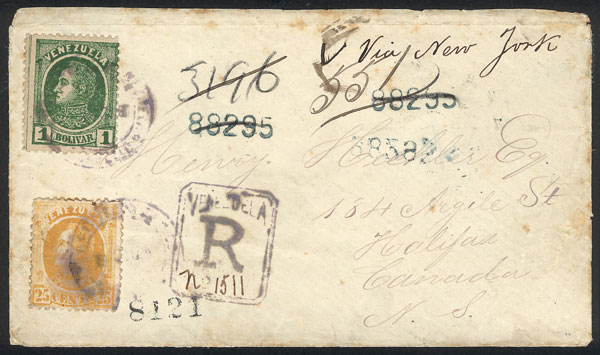 VENEZUELA
1 BOLIVAR 1
Via New York
5196
88295
551
88295
Henry Hechler Eq.
184 Argile St
Halifax
Canada
N. S.
VENEZUELA
25 CENT. 25
VENEZUELA
R
No 1511
8121